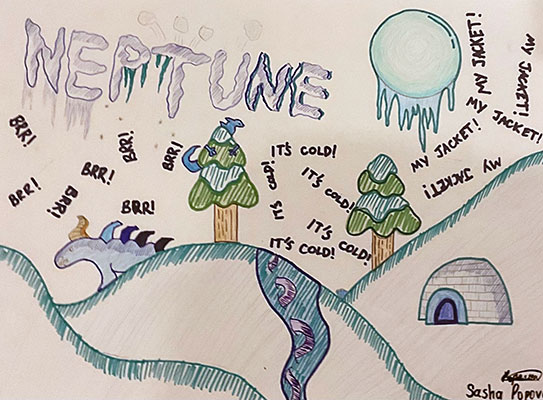 NEPTUNE
MY JACKET!
MY JACKET!
MY JACKET!
MY JACKET!
MY JACKET!
BRR!
BRR!
BRR!
BRR!
BRR!
BRR!
BRR!
IT'S COLD!
IT'S COLD!
IT'S COLD!
IT'S COLD!
IT'S COLD!
Sasha Popov